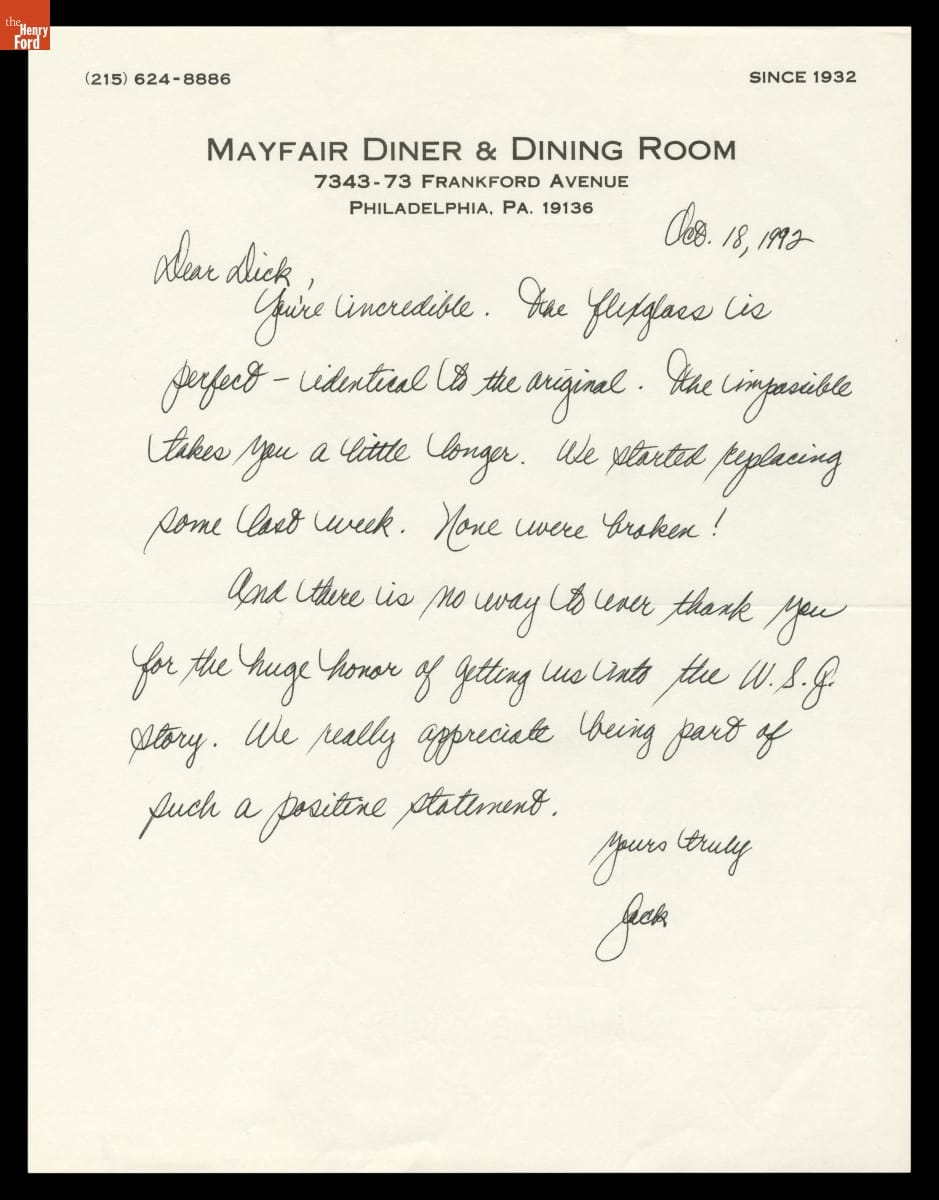 the
Henry
Ford
(215) 624-8886
SINCE 1932
MAYFAIR DINER & DINING ROOM
7343-73 FRANKFORD AVENUE
PHILADELPHIA, PA. 19136
Oct. 18, 1992
Dear Dick,
You're incredible. The flexglass is
perfect - identical to the original. The impossible
takes you a little longer. We started replacing
some last week. None were broken!
And there is no way to ever thank you
for the huge honor of getting us into the W.S.J.
story. We really appreciate being part of
such a positive statement.
Yours truly
Jack